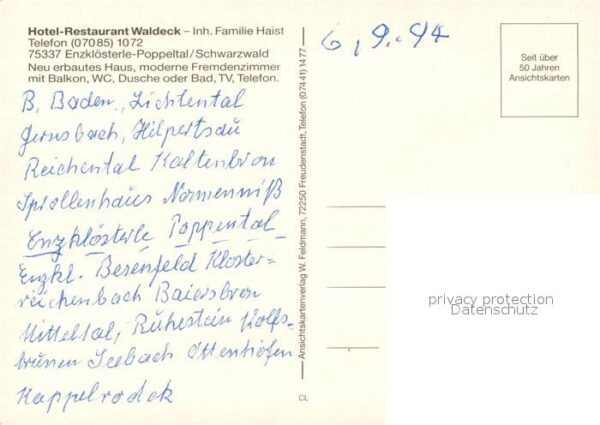 Hotel-Restaurant Waldeck – Inh. Familie Haist
Telefon (07085) 1072
75337 Enzklösterle-Poppeltal/Schwarzwald
Neu erbautes Haus, moderne Fremdenzimmer
mit Balkon, WC, Dusche oder Bad, TV, Telefon.
B. Baden, Lichtental
Gernsbach, Hilpertsau
Reichental Kaltenbron
Sprollenhaus Nonnenmiß
Enzklösterle Poppental
Enzkl. Besenfeld Kloster-
reichenbach Baiersbron
Mitteltal, Ruhestein Wolfs-
brunen Seebach Ottenhöfen
Kappelrodek
Ansichtskartenverlag W. Feldmann, 72250 Freudenstadt, Telefon (07441) 1477
CL
6, 9. 94
Seit über
50 Jahren
Ansichtskarten
privacy protection
Datenschutz